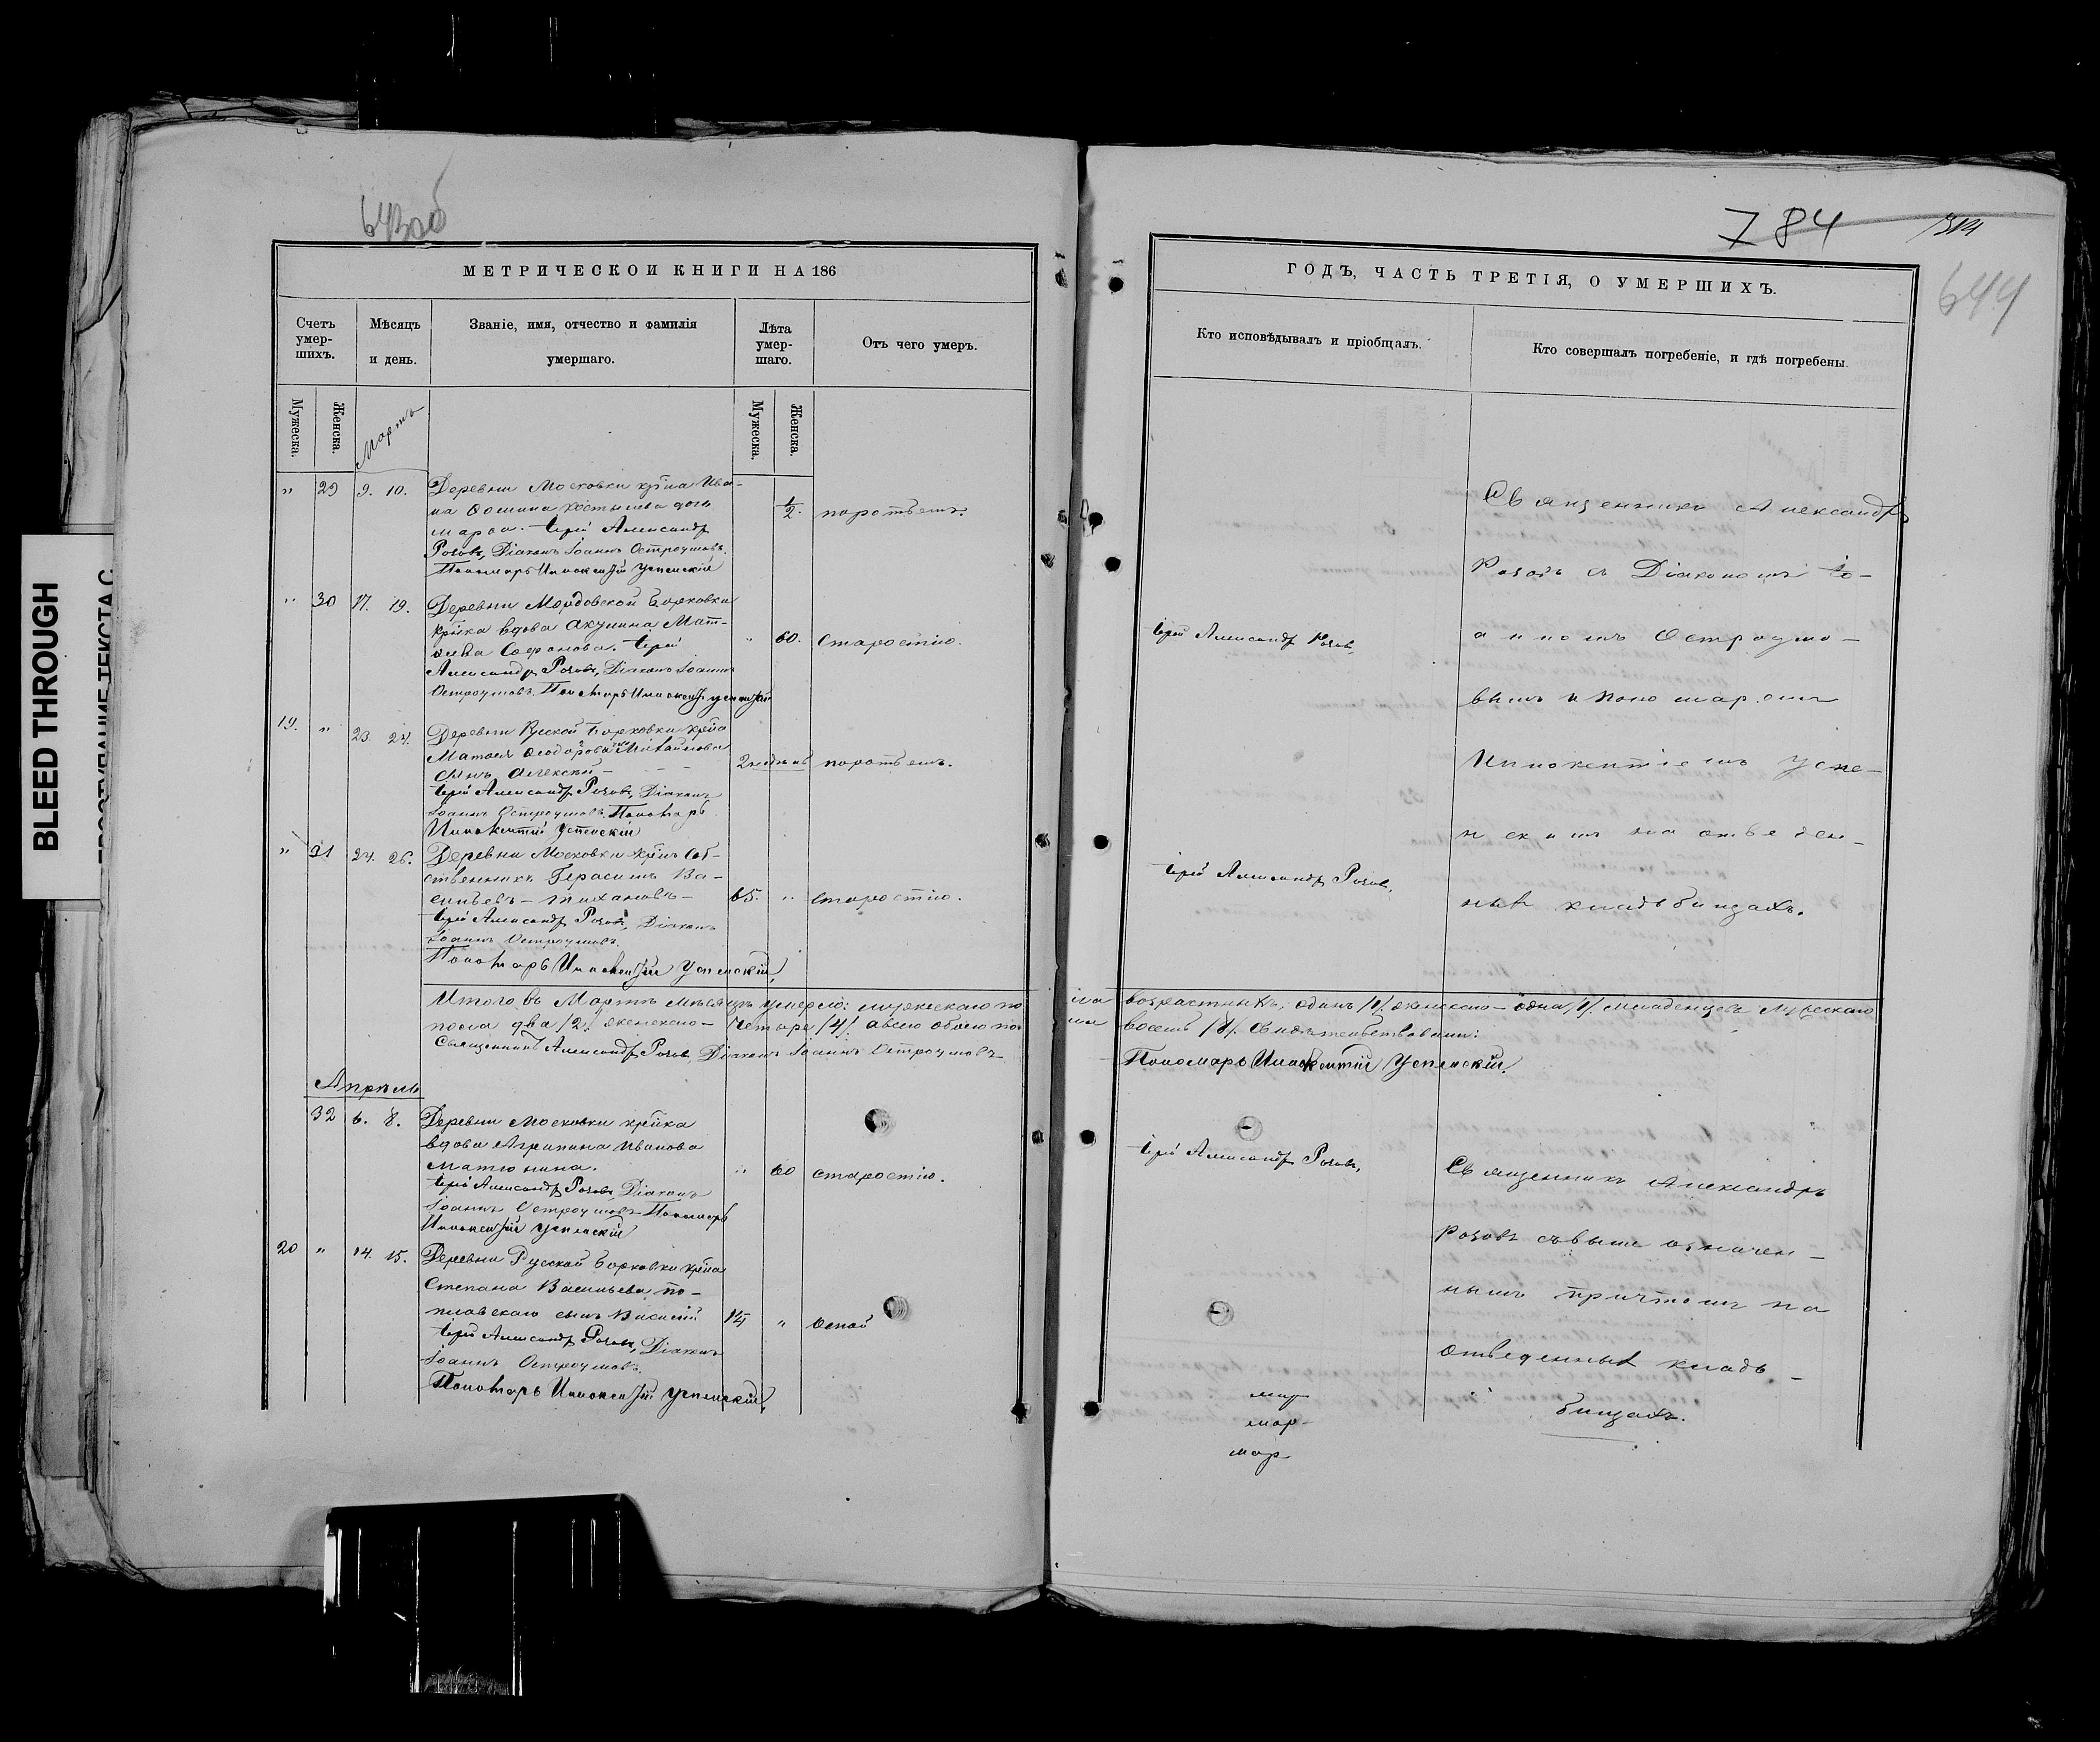 BLEED THROUGH
643об
784
644
МЕТРИЧЕСКОЙ КНИГИ НА 186
Счетъ умер-шихъ.
Мѣсяцъ и день.
Званіе, имя, отчество и фамилія умершаго.
Лѣта умер-шаго.
Отъ чего умеръ.
Мужеска.
Женска.
Мартъ
Мужеска.
Женска.
" 29 9. 10. Деревни Московки кр͠на Ива-
на Фомина Костылева дочь
Марѳа. Іерей Александр
Розовъ, Діаконъ Іоаннъ Остроумовъ.
Пономарь Иннокентій Успенскій
1/2. поротьемъ.
" 30 17. 19. Деревни Мордовской Борковки
кр͠нка вдова Акулина Мат-
Софонова. Іерей
Александр Розовъ, Діаконъ Іоаннъ
Остроумовъ. Пономарь Иннокентій Успенскій
" 60. Старостію.
19. " 23. 24. Деревни Русской Борковки кр͠на
Матвея Ѳеодорова Михайлова
сынъ Алексѣй –
Іерей Александр Розовъ, Діаконъ
Іоаннъ Остроумовъ. Пономарь
Иннокентій Успенскій
поротьемъ.
" 31 24. 26. Деревни Московки кр͠нъ Соб-
ственникъ Герасимъ Ва-
сильевъ – Тихановъ –
Іерей Александр Розовъ, Діаконъ
Іоаннъ Остроумовъ.
Пономарь Иннокентій Успенскій
65. " старостію.
Итого въ Мартѣ мѣсяцѣ умерло: мужескаго по
пола два /2/. женскаго – четыре /4/. а всего обоего по
Священникъ Александр Розовъ Діаконъ Іоаннъ Остроумовъ
Апрѣль
32 6. 8. Деревни Московки кр͠нка
вдова Агрипина Иванова
Матюнина.
Іерей Александр Розовъ, Діаконъ
Іоаннъ Остроумовъ Пономарь
Иннокентій Успенскій
" 60 старостію.
20 " 14. 15. Деревни Русской Борковки кр͠на
Степана Васильева По-
плавскаго сынъ Василій
Іерей Александр Розовъ, Діаконъ
Іоаннъ Остроумовъ.
Пономарь Иннокентій Успенскій
" Оспой
ГОДЪ, ЧАСТЬ ТРЕТІЯ, О УМЕРШИХЪ.
Кто исповѣдывалъ и пріобщалъ.
Кто совершалъ погребеніе, и гдѣ погребены.
Іерей Александр Розовъ,
Іерей Александр Розовъ,
Священникъ Александръ
Розовъ съ Діакономъ Іо-
анномъ Остроумо-
вымъ и Пономаремъ
Иннокентіемъ Успе-
нскимъ на отведен-
ныхъ кладбищахъ.
ла возрастныхъ, одинъ /1/. женскаго – одна /1/. младенцевъ Мужескаго
ла восемь /8/. Свидѣтельствовали:
Пономарь Иннокентій Успенскій.
Іерей Александр Розовъ,
Священникъ Александръ
Розовъ съ выше означен-
нымъ причтомъ на
отведенныхъ кладь-
бищахъ.
мар
мар
мар